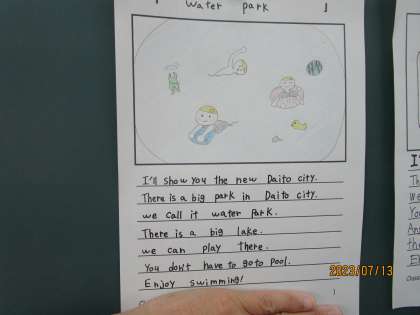 「 Water park 」
I'll show you the new Daito city.
There is a big park in Daito city.
we call it water park.
There is a big lake.
we can play there.
You don't have to go to pool.
Enjoy swimming!
2023/07/13